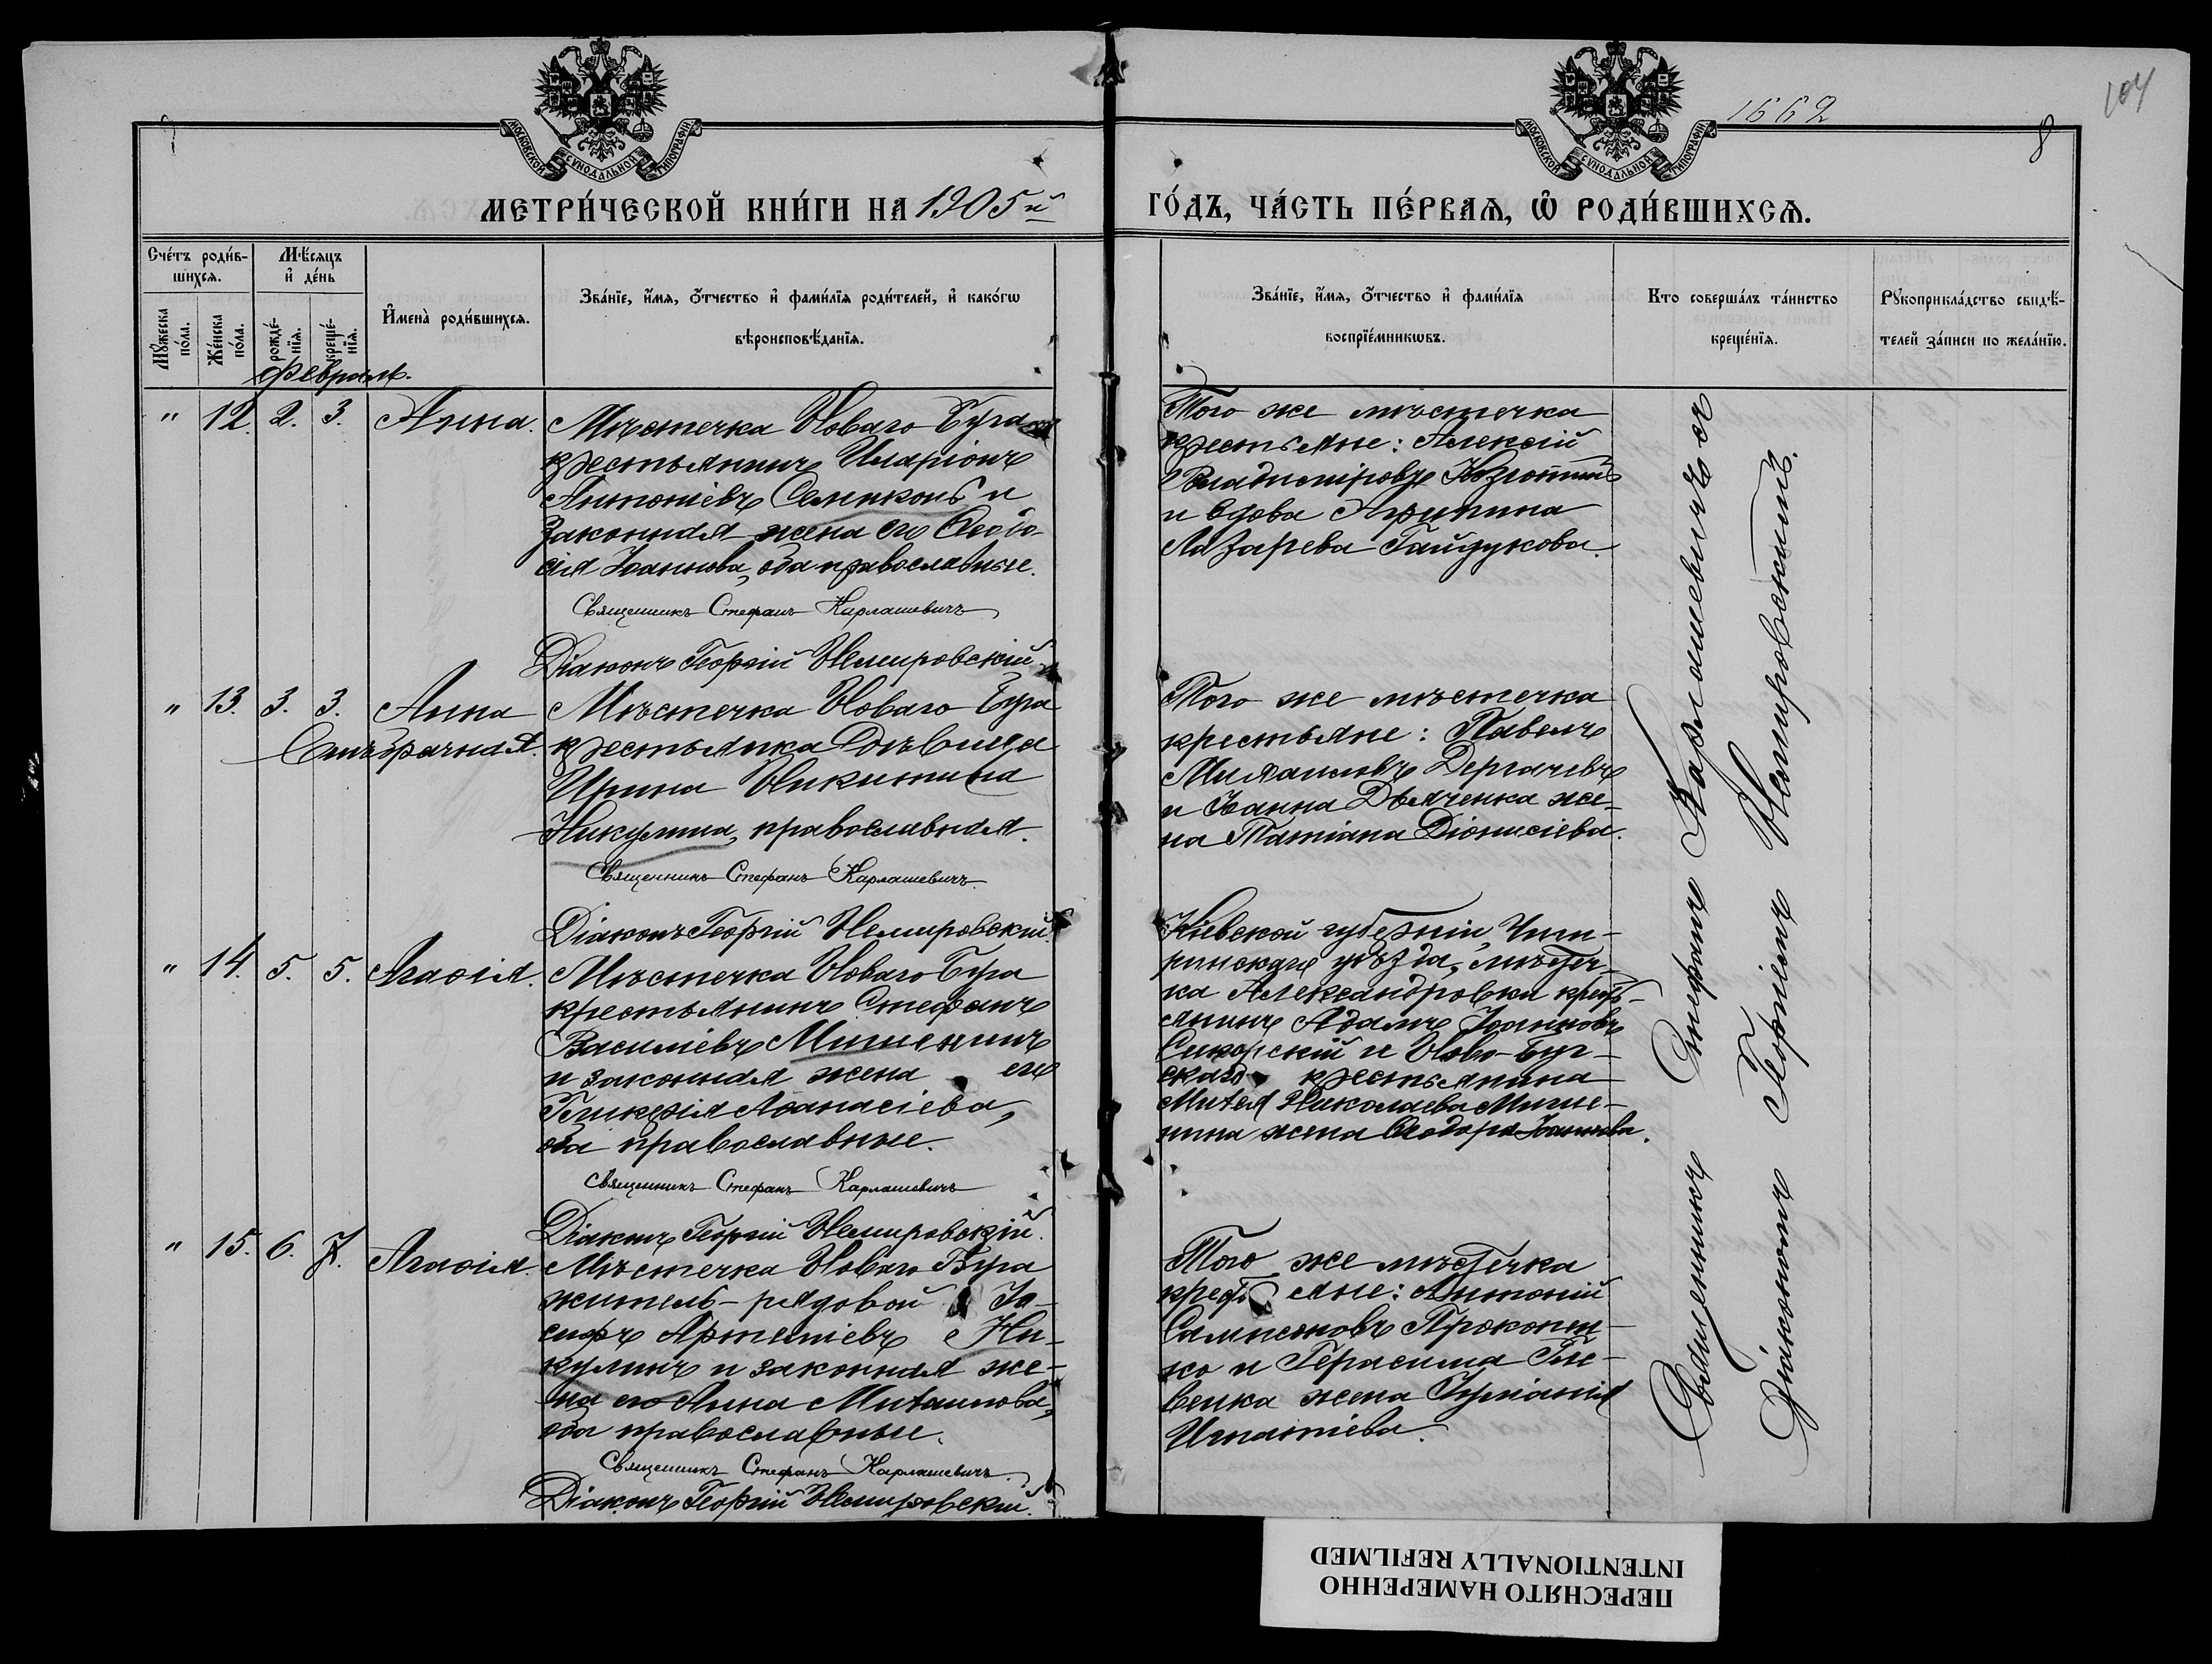 1662
104
8
МОСКОВСКОЙ СѴНОДАЛЬНОЙ ТИПОГРАФІИ
МОСКОВСКОЙ СѴНОДАЛЬНОЙ ТИПОГРАФІИ
МЕТРИ́ЧЕСКОЙ КНИ́ГИ НА 1905й
ГО́ДЪ, ЧА́СТЬ ПЕ́РВАѦ, Ѡ҆ РОДИ́ВШИХСѦ.
Сче́тъ роди́в-
шихсѧ.
Мꙋ́жеска по́ла.
Же́нска по́ла.
Мѣ́сѧцъ
и҆ де́нь
рожде́-
нїѧ.
креще́-
нїѧ.
И҆мена̀ роди́вшихсѧ.
Зва́нїе, и҆́мѧ, ѻ҆́тчество и҆ фами́лїѧ роди́телей, и҆ како́гѡ
вѣроисповѣ́данїѧ.
Зва́нїе, и҆́мѧ, ѻ҆́тчество и҆ фами́лїѧ
воспрїе́мникѡвъ.
Кто соверша́лъ та́инство
креще́нїѧ.
Рꙋкоприкла́дство свидѣ́-
телей за́писи по жела́нїю.
Февраль.
" 12. 2. 3. Анна.
Мѣстечка Новаго Буга
крестьянинъ Иларіонъ
Антоніевъ Семиконь и
законная жена его Ѳеодо-
сія Іоаннова, оба православные.
Священникъ Стефанъ Карлашевичъ
Діаконъ Георгій Немировскій
Того же мѣстечка
крестьяне: Алексій
Владиміровъ
и вдова Агрипина
Лазарева Гайдукова.
" 13. 3. 3. Анна
Внѣбрачная.
Мѣстечка Новаго Буга
крестьянка дѣвица
Ирина Никитина
Никулина, православная.
Священникъ Стефанъ Карлашевичъ
Діаконъ Георгій Немировскій
Того же мѣстечка
крестьяне: Павелъ
Михаиловъ Дергачевъ
и Іоанна Дьяченка же-
на Татіана Діонисіева.
" 14. 5. 5. Агаѳія.
Мѣстечка Новаго Буга
крестьянинъ Стефанъ
Василіевъ Мишенинъ
и законная жена его
Гликерія Аѳанасіева,
оба православные.
Священникъ Стефанъ Карлашевичъ
Діаконъ Георгій Немировскій.
Кіевской губерніи, Чиги-
ринскаго уѣзда, мѣстеч-
ка Александровки кресть-
янинъ Адамъ Іоанновъ
Сикорскій и Ново-Буг-
скаго крестьянина
Михея Николаева Мише-
нина жена Ѳеодора Іоаннова.
" 15. 6. 7. Агаѳія.
Мѣстечка Новаго Буга
житель-рядовой Іо-
сифъ Артеміевъ Ни-
кулинъ и законная же-
на его Анна Михаилова,
оба православные.
Священникъ Стефанъ Карлашевичъ
Діаконъ Георгій Немировскій.
Того же мѣстечка
крестьяне: Антоній
Сампсоновъ Прокопен-
ко и Герасима Гле-
венка жена
Игнатіева.
Священникъ Стефанъ Карлашевичъ съ
Діакономъ Георгіемъ Немировскимъ.
ПЕРЕСНЯТО НАМЕРЕННО
INTENTIONALLY REFILMED